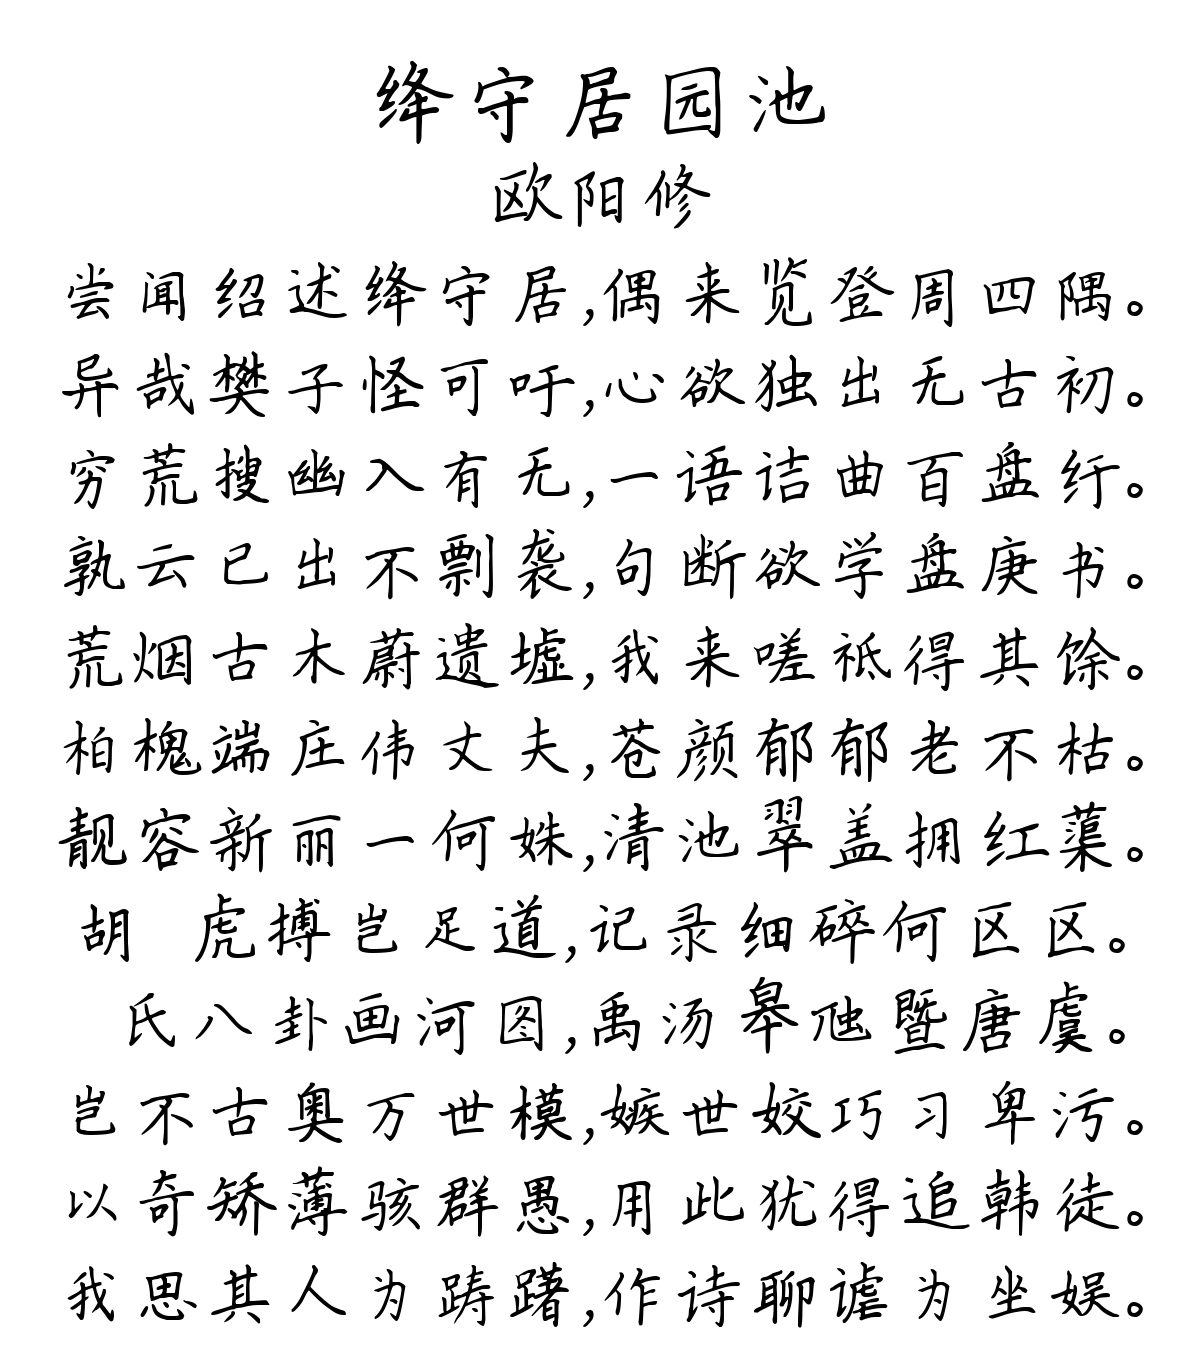 绛守居园池
欧阳修
尝闻绍述绛守居,偶来览登周四隅。
异哉樊子怪可吁,心欲独出无古初。
穷荒搜幽入有无,一语诘曲百盘纡。
孰云已出不剽袭,句断欲学盘庚书。
荒烟古木蔚遗墟,我来嗟祗得其馀。
柏槐端庄伟丈夫,苍颜郁郁老不枯。
靓容新丽一何姝,清池翠盖拥红蕖。
胡 虎搏岂足道,记录细碎何区区。
氏八卦画河图,禹汤皋虺暨唐虞。
岂不古奥万世模,嫉世姣巧习卑污。
以奇矫薄骇群愚,用此犹得追韩徒。
我思其人为踌躇,作诗聊谑为坐娱。